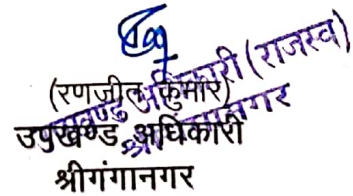 (रणजीत कुमार)
उपखण्ड अधिकारी
श्रीगंगानगर
उपखण्ड अधिकारी (राजस्व)
श्रीगंगानगर